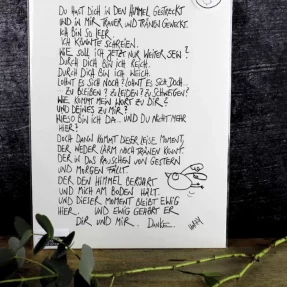 DU HAST DICH IN DEN HIMMEL GESTRECKT
UND IN MIR TRAUER UND TRÄNEN GEWECKT.
ICH BIN SO LEER.
ICH KÖNNTE SCHREIEN.
WIE SOLL ICH JETZT NUR WEITER SEIN?
DURCH DICH BIN ICH REICH.
DURCH DICH BIN ICH WEICH.
LOHNT ES SICH NOCH? LOHNT ES SICH DOCH...
... ZU BLEIBEN? ZU LEIDEN? ZU SCHWEIGEN?
WIE KOMMT MEIN WORT ZU DIR?
UND DEINES ZU MIR?
WIESO BIN ICH DA... UND DU NICHT MEHR
HIER?
DOCH DANN KOMMT DIESER LEISE MOMENT,
DER WEDER LÄRM NOCH TRÄNEN KENNT.
DER IN DAS RAUSCHEN VON GESTERN
UND MORGEN FÄLLT.
DER DEN HIMMEL BEWAHRT
UND MICH AM BODEN HÄLT.
UND DIESER MOMENT BLEIBT EWIG
HIER... UND EWIG GEHÖRT ER
DIR UND MIR. DANKE.